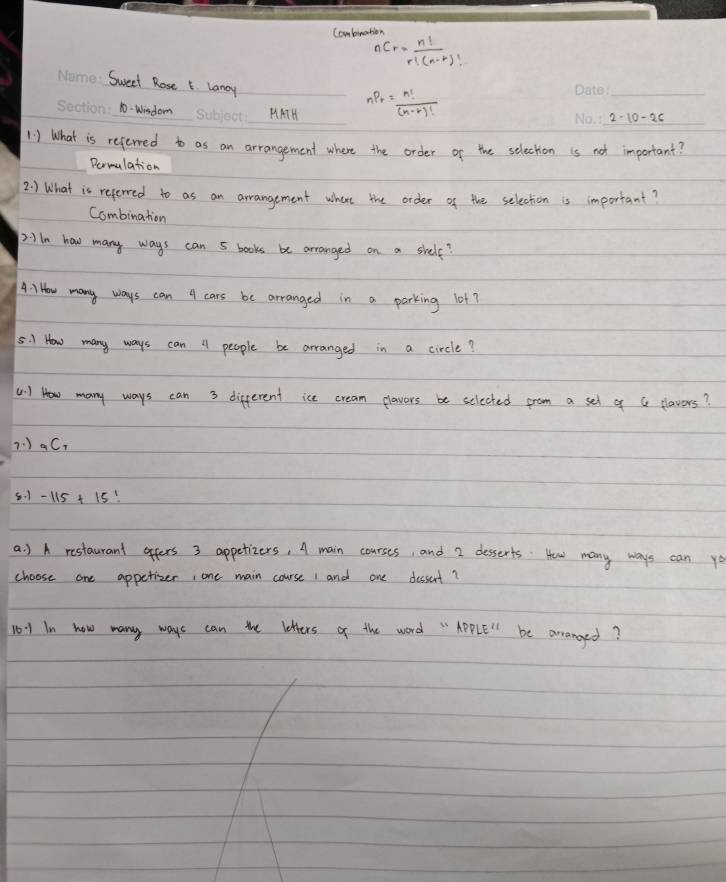 Combination
nCr = n! / r!(n-r)!
Name: Sweet Rose E. Lanoy
nPr = n! / (n-r)!
Date:
Section: 10-Wisdom Subject: MATH
No.: 2-10-26
1.) What is referred to as an arrangement where the order of the selection is not important?
Permulation
2.) What is referred to as an arrangement where the order of the selection is important?
Combination
3.) In how many ways can 5 books be arranged on a shelf?
4.) How many ways can 4 cars be arranged in a parking lot?
5.) How many ways can 4 people be arranged in a circle?
6.) How many ways can 3 different ice cream flavors be selected from a set of 6 flavors?
7.) 9C7
8.) -115 + 15!
9.) A restaurant offers 3 appetizers, 4 main courses, and 2 desserts. How many ways can yo
choose one appetizer, one main course, and one dessert?
10.) In how many ways can the letters of the word "APPLE" be arranged?